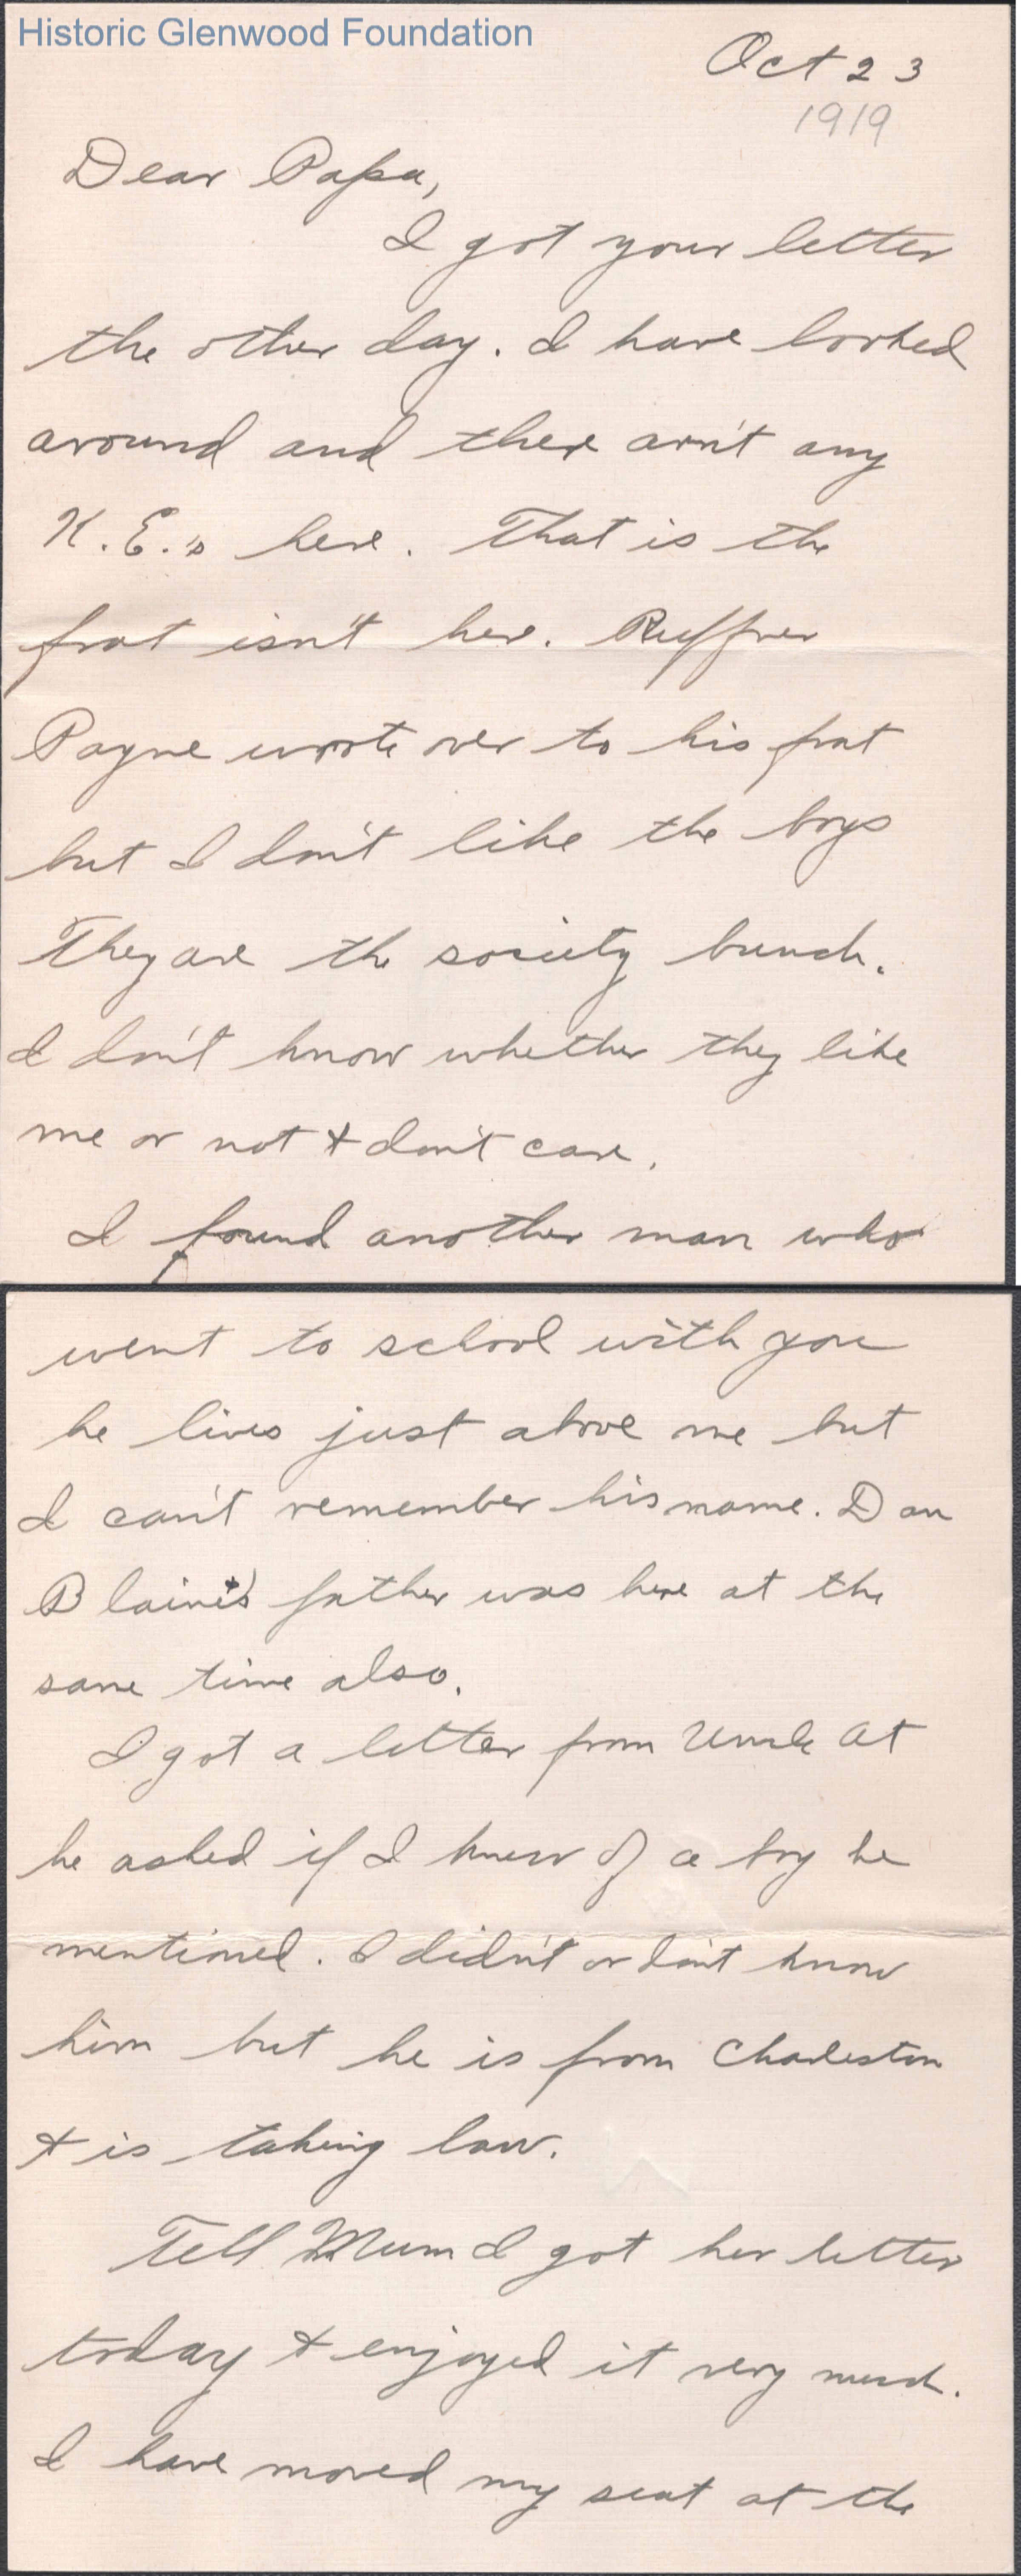 Historic Glenwood Foundation
Oct 23
1919
Dear Papa,
I got your letter
the other day. I have looked
around and there arn't any
K.E.'s here. That is the
frat isn't here. Ruffner
Payne wrote over to his frat
but I don't like the boys
They are the society bunch.
I don't know whether they like
me or not & don't care.
I found another man who
went to school with you
he lives just above me but
I can't remember his name. Dan
Blaine's father was here at the
same time also.
I got a letter from Uncle At
he asked if I knew of a boy he
mentioned. I didn't or don't know
him but he is from Charleston
& is taking law.
Tell Mum I got her letter
today & enjoyed it very much.
I have moved my seat at the